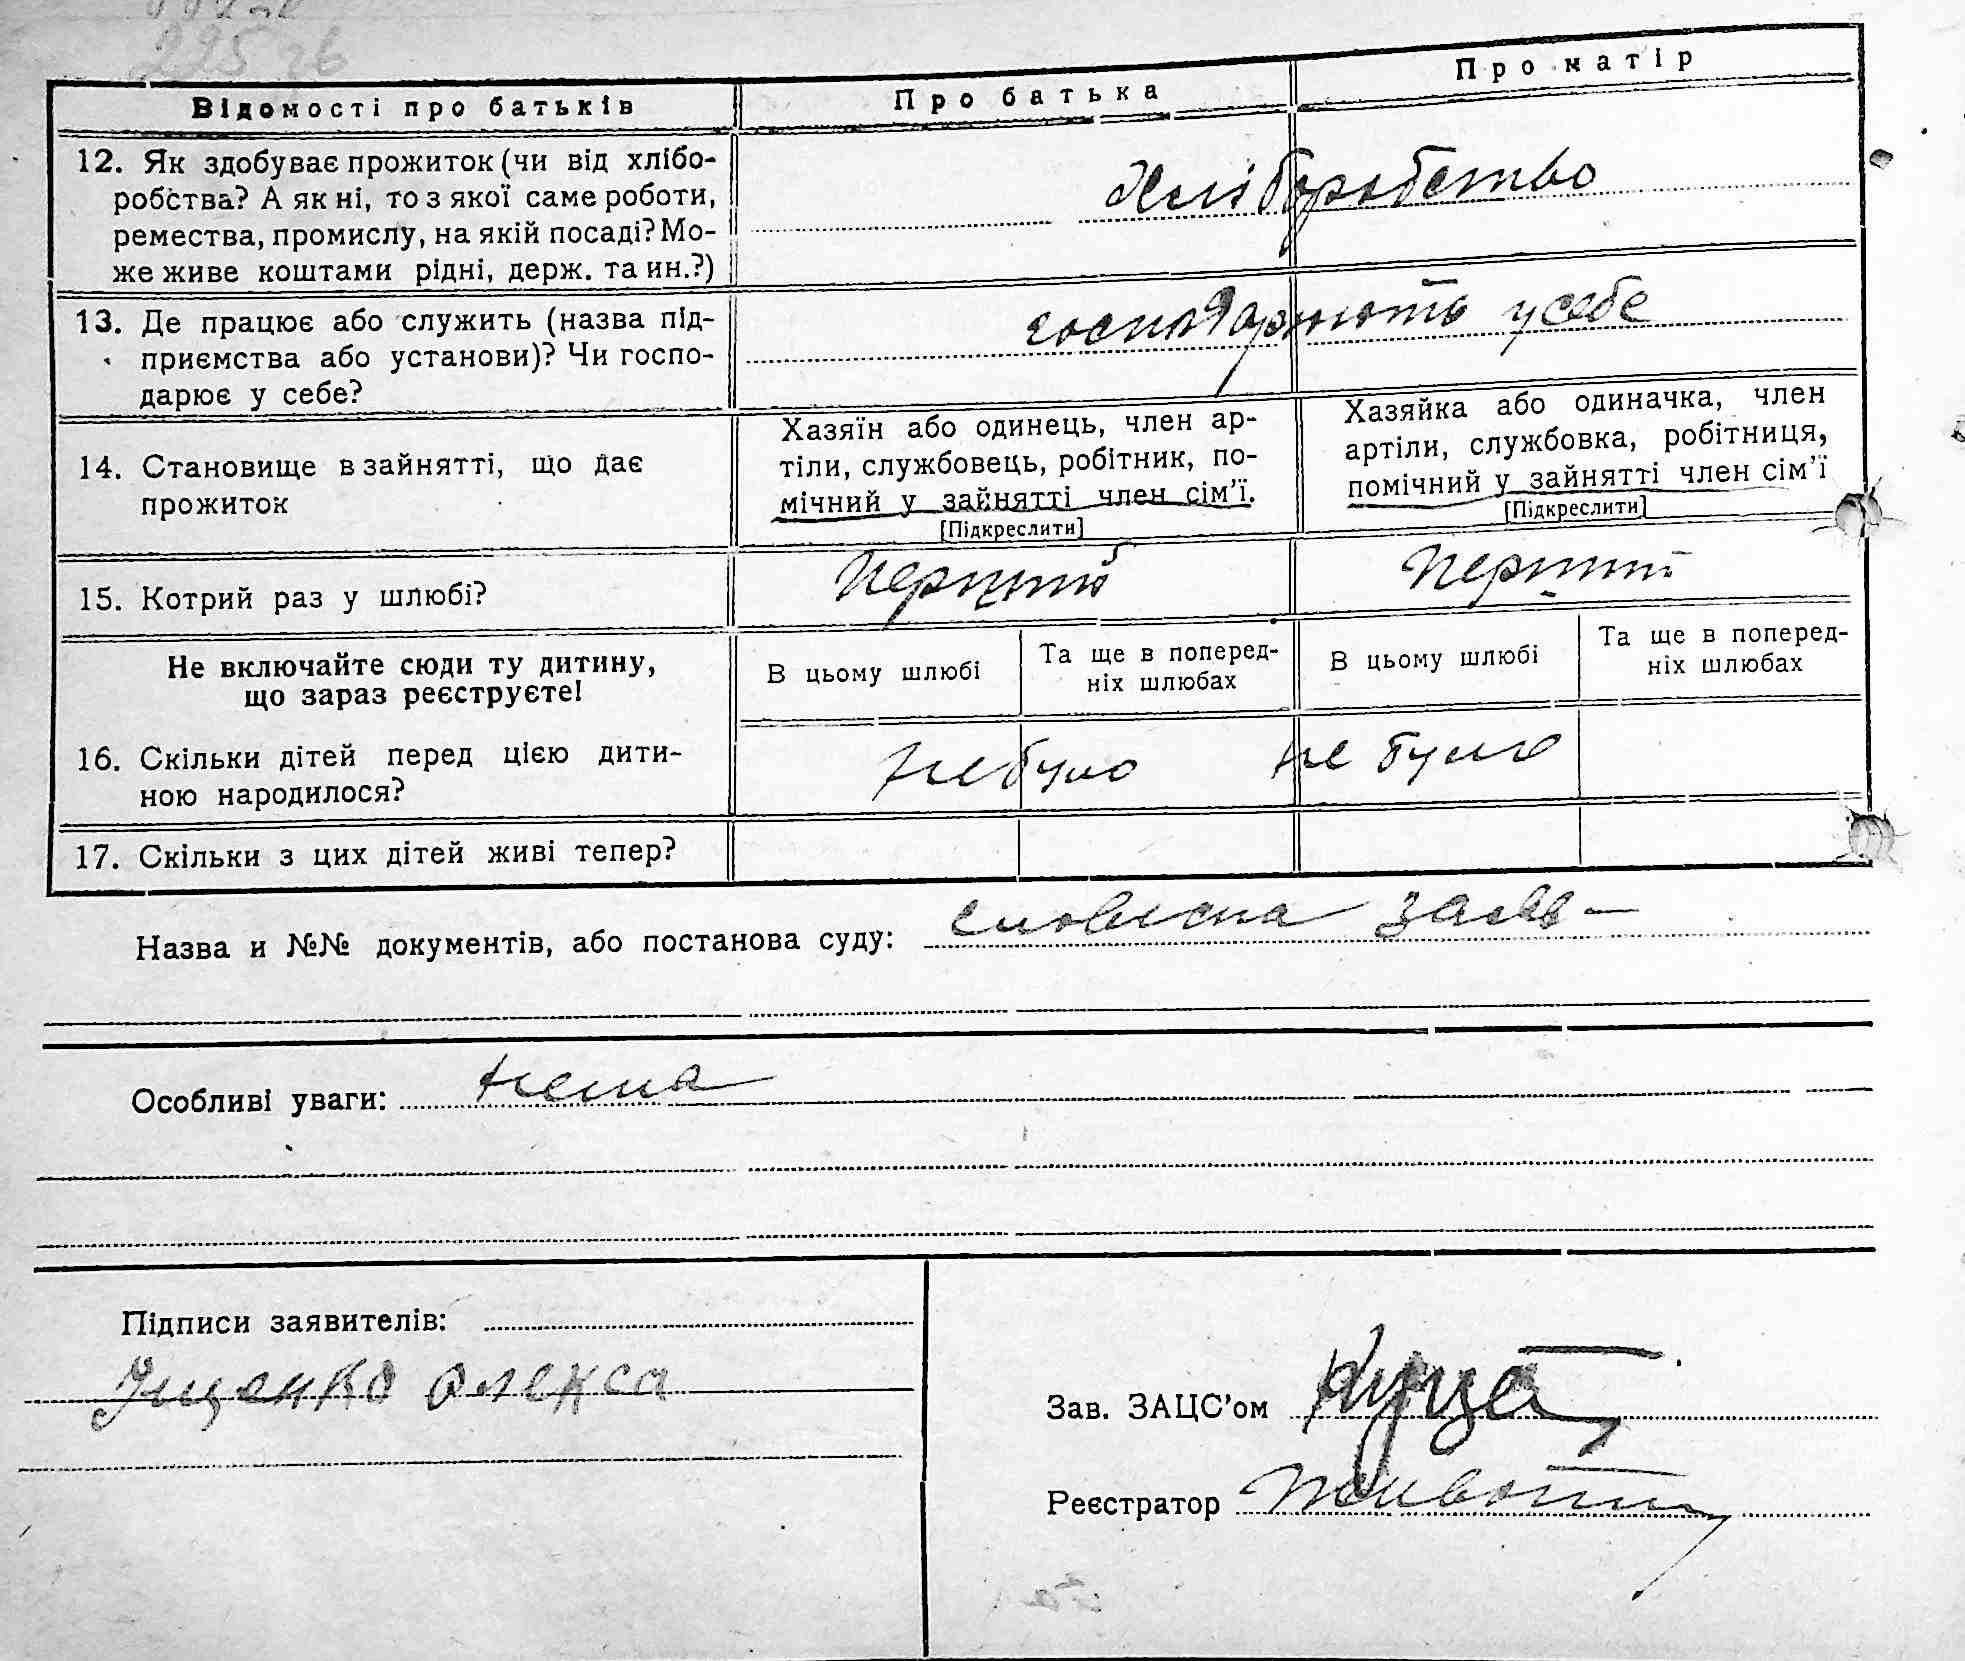 225 зв
Відомості про батьків
Про батька
Про матір
12. Як здобуває прожиток (чи від хлібо-
робства? А як ні, то з якої саме роботи,
ремества, промислу, на якій посаді? Мо-
же живе коштами рідні, держ. та ин.?)
Хліборобство
13. Де працює або служить (назва під-
приємства або установи)? Чи госпо-
дарює у себе?
господарюють у себе
14. Становище в зайнятті, що дає
прожиток
Хазяїн або одинець, член ар-
тіли, службовець, робітник, по-
мічний у зайнятті член сім'ї.
[Підкреслити]
Хазяйка або одиначка, член
артіли, службовка, робітниця,
помічний у зайнятті член сім'ї
[Підкреслити]
15. Котрий раз у шлюбі?
Перший
Перший
Не включайте сюди ту дитину,
що зараз реєструєте!
В цьому шлюбі
Та ще в поперед-
ніх шлюбах
В цьому шлюбі
Та ще в поперед-
ніх шлюбах
16. Скільки дітей перед цією дити-
ною народилося?
не було
не було
17. Скільки з цих дітей живі тепер?
Назва и №№ документів, або постанова суду: словесна заяв
Особливі уваги: нема
Підписи заявителів:
Іщенко Олекса
Зав. ЗАЦС'ом
Реєстратор